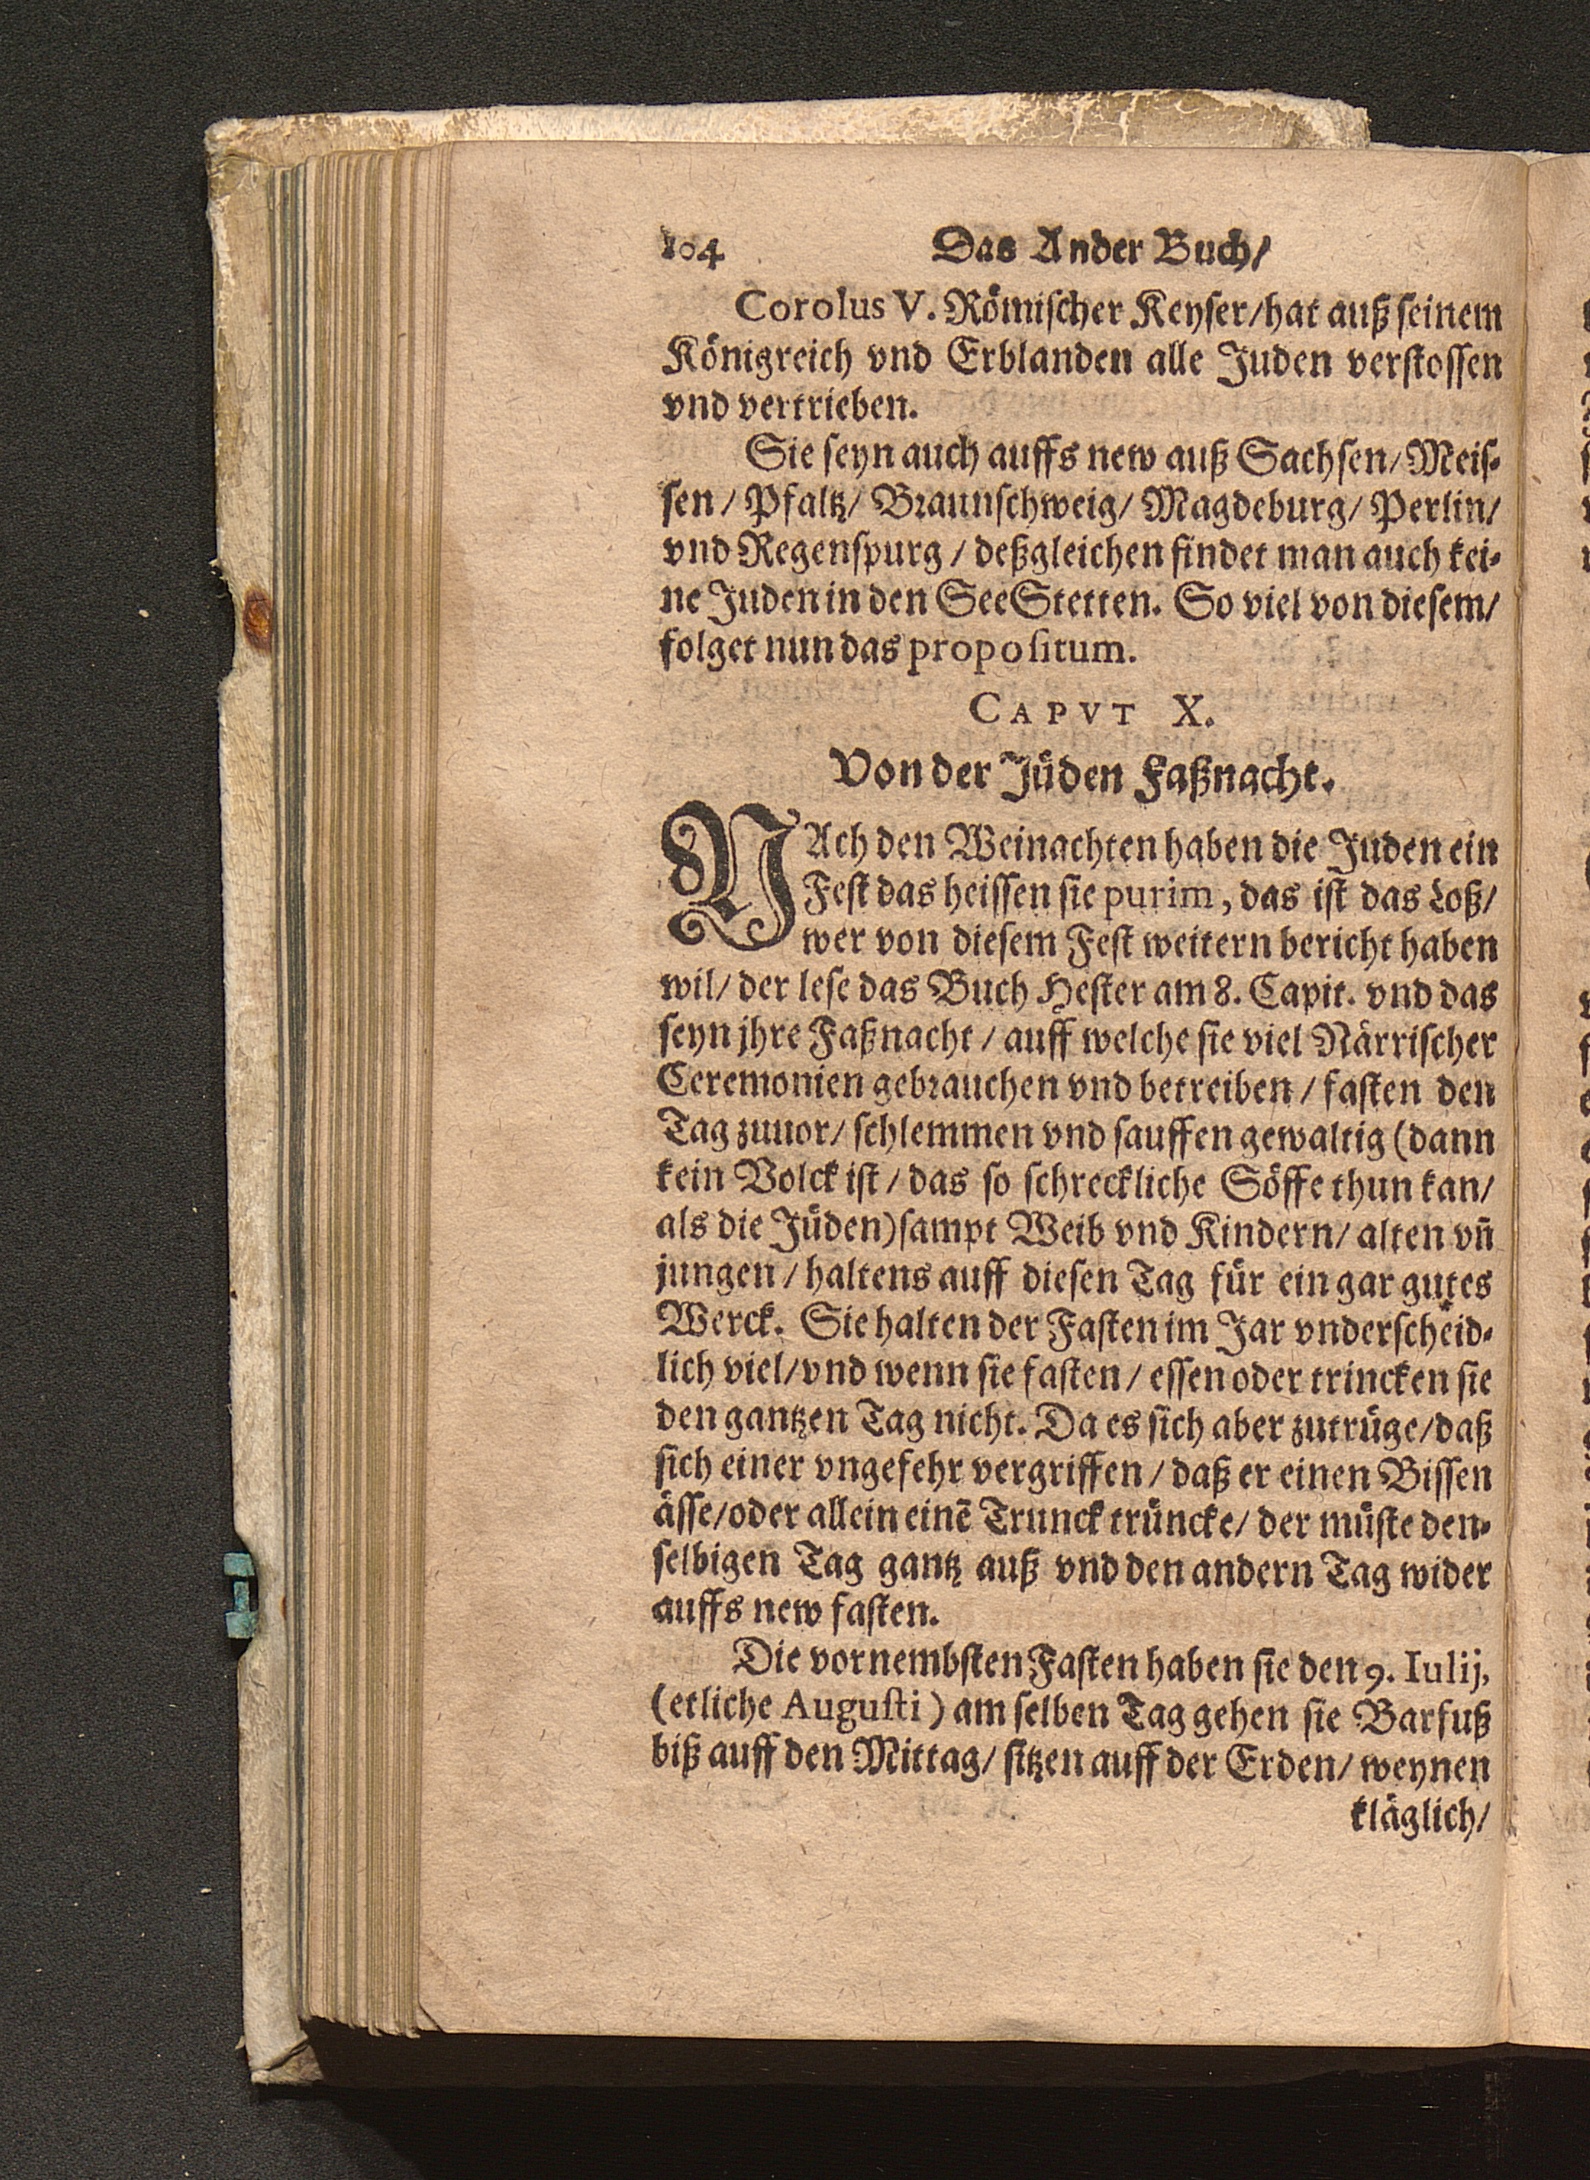 104 Das Ander Buch/
Corolus V. Römischer Keyser/hat auß seinem
Königreich vnd Erblanden alle Juden verstossen
vnd vertrieben.
Sie seyn auch auffs new auß Sachsen/Meis-
sen/Pfaltz/Braunschweig/Magdeburg/Perlin/
vnd Regenspurg/deßgleichen findet man auch kei-
ne Juden in den SeeStetten. So viel von diesem/
folget nun das propositum.
CAPVT X.
Von der Jüden Faßnacht.
NAch den Weinachten haben die Juden ein
Fest das heissen sie purim, das ist das Loß/
wer von diesem Fest weitern bericht haben
wil/der lese das Buch Hester am 8. Capit. vnd das
seyn jhre Faßnacht/auff welche sie viel Närrischer
Ceremonien gebrauchen vnd betreiben/fasten den
Tag zuuor/schlemmen vnd sauffen gewaltig (dann
kein Volck ist/das so schreckliche Söffe thun kan/
als die Jüden) sampt Weib vnd Kindern/alten vn̄
jungen/haltens auff diesen Tag für ein gar gutes
Werck. Sie halten der Fasten im Jar vnderscheid-
lich viel/vnd wenn sie fasten/essen oder trincken sie
den gantzen Tag nicht. Da es sich aber zutrüge/daß
sich einer vngefehr vergriffen/daß er einen Bissen
ässe/oder allein einē Trunck trüncke/der müste den-
selbigen Tag gantz auß vnd den andern Tag wider
auffs new fasten.
Die vornembsten Fasten haben sie den 9. Iulij,
(etliche Augusti) am selben Tag gehen sie Barfuß
biß auff den Mittag/sitzen auff der Erden/weynen
kläglich/